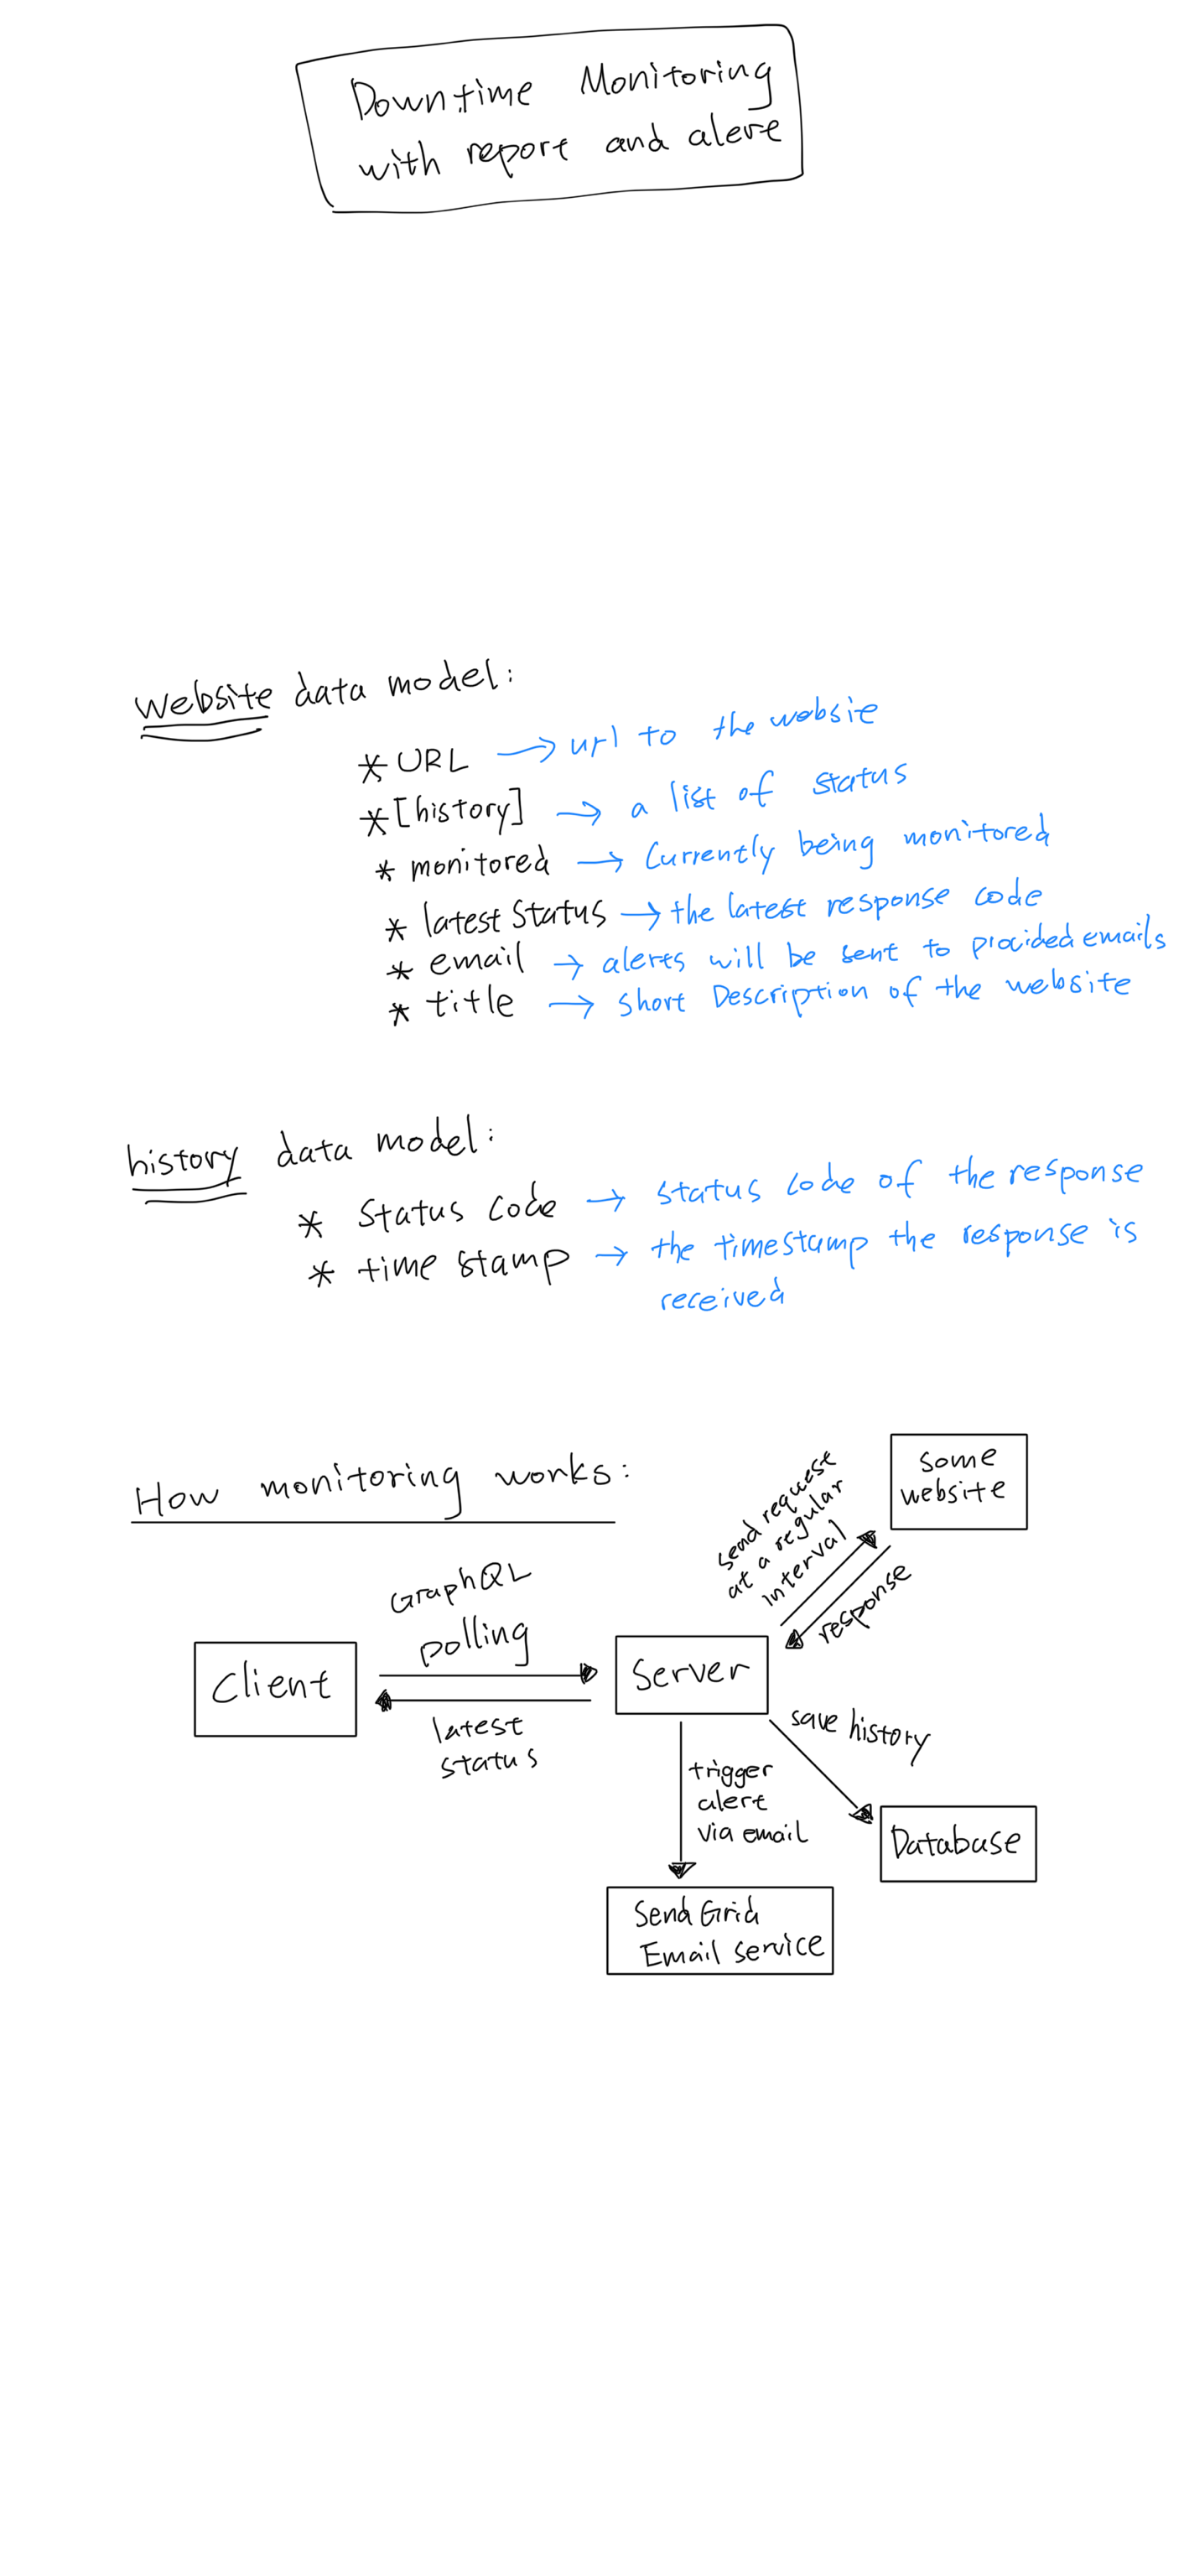 Downtime Monitoring
with report and alert
website data model:
* URL → url to the websie
* [history] → a list of status
* monitored → Currently being monitored
* latest Status → the latest response code
* email → alerts will be sent to procided emails
* title → short Description of the website
history data model:
* Status Code → status code of the response
* time stamp → the timestamp the response is
received
How monitoring works:
some
website
send request
at a regular
interval
response
GraphQL
polling
Client
Server
latest
status
save history
trigger
alert
via email
Database
Send Grid
Email service